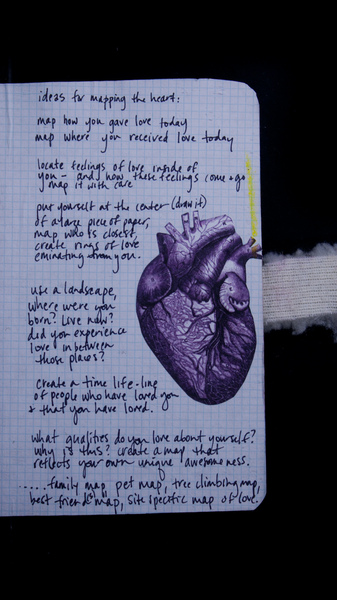 ideas for mapping the heart:
map how you gave love today
map where you received love today
locate feelings of love inside of
you - and how these feelings come + go
map it with care
put yourself at the center (draw it)
of a large piece of paper,
map who is closest,
create rings of love
eminating from you.
use a landscape,
where were you
born? live now?
did you experience
love in between
those places?
create a time life-line
of people who have loved you
+ that you have loved.
what qualities do you love about yourself?
why is this? create a map that
reflects your own unique awesomeness.
....family map, pet map, tree climbing map,
best friend map, site specific map of love.